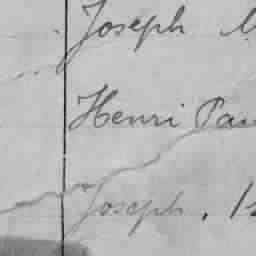 Joseph
Henri Pau
Joseph.